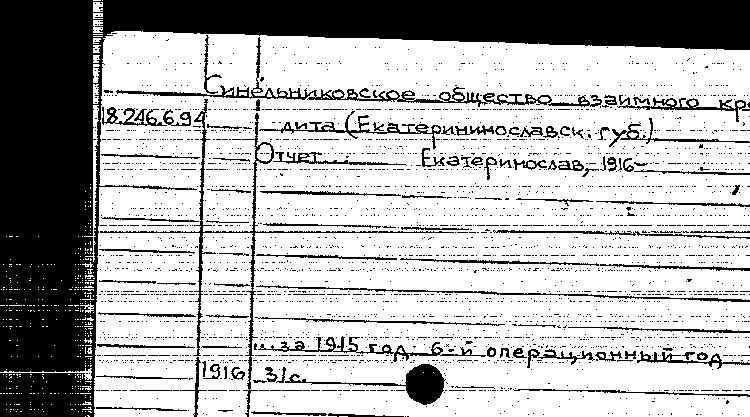 Синельниковское общество взаимного кре
18.246.6.94 дита (Екатерининославск. губ.)
Отчет... Екатеринослав, 1916-
...за 1915 год. 6-й операционный год
1916 31с.